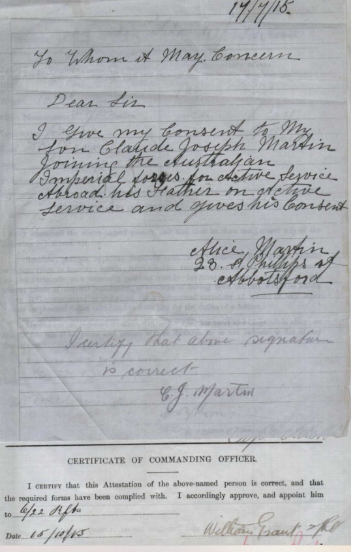 17/7/15.
To Whom it May Concern
Dear Sir
I Give my Consent to My
Son Claude Joseph Martin
Joining the Australian
Imperial forces for Active Service
Abroad. his Father on Active
Service and gives his Consent
Alice Martin
28 St Phillips st
Abbotsford
I certify that above signature
is correct
C. J. Martin
CERTIFICATE OF COMMANDING OFFICER.
I CERTIFY that this Attestation of the above-named person is correct, and that
the required forms have been complied with. I accordingly approve, and appoint him
to 6/22 Rfts
Date 15/10/15
William Grant